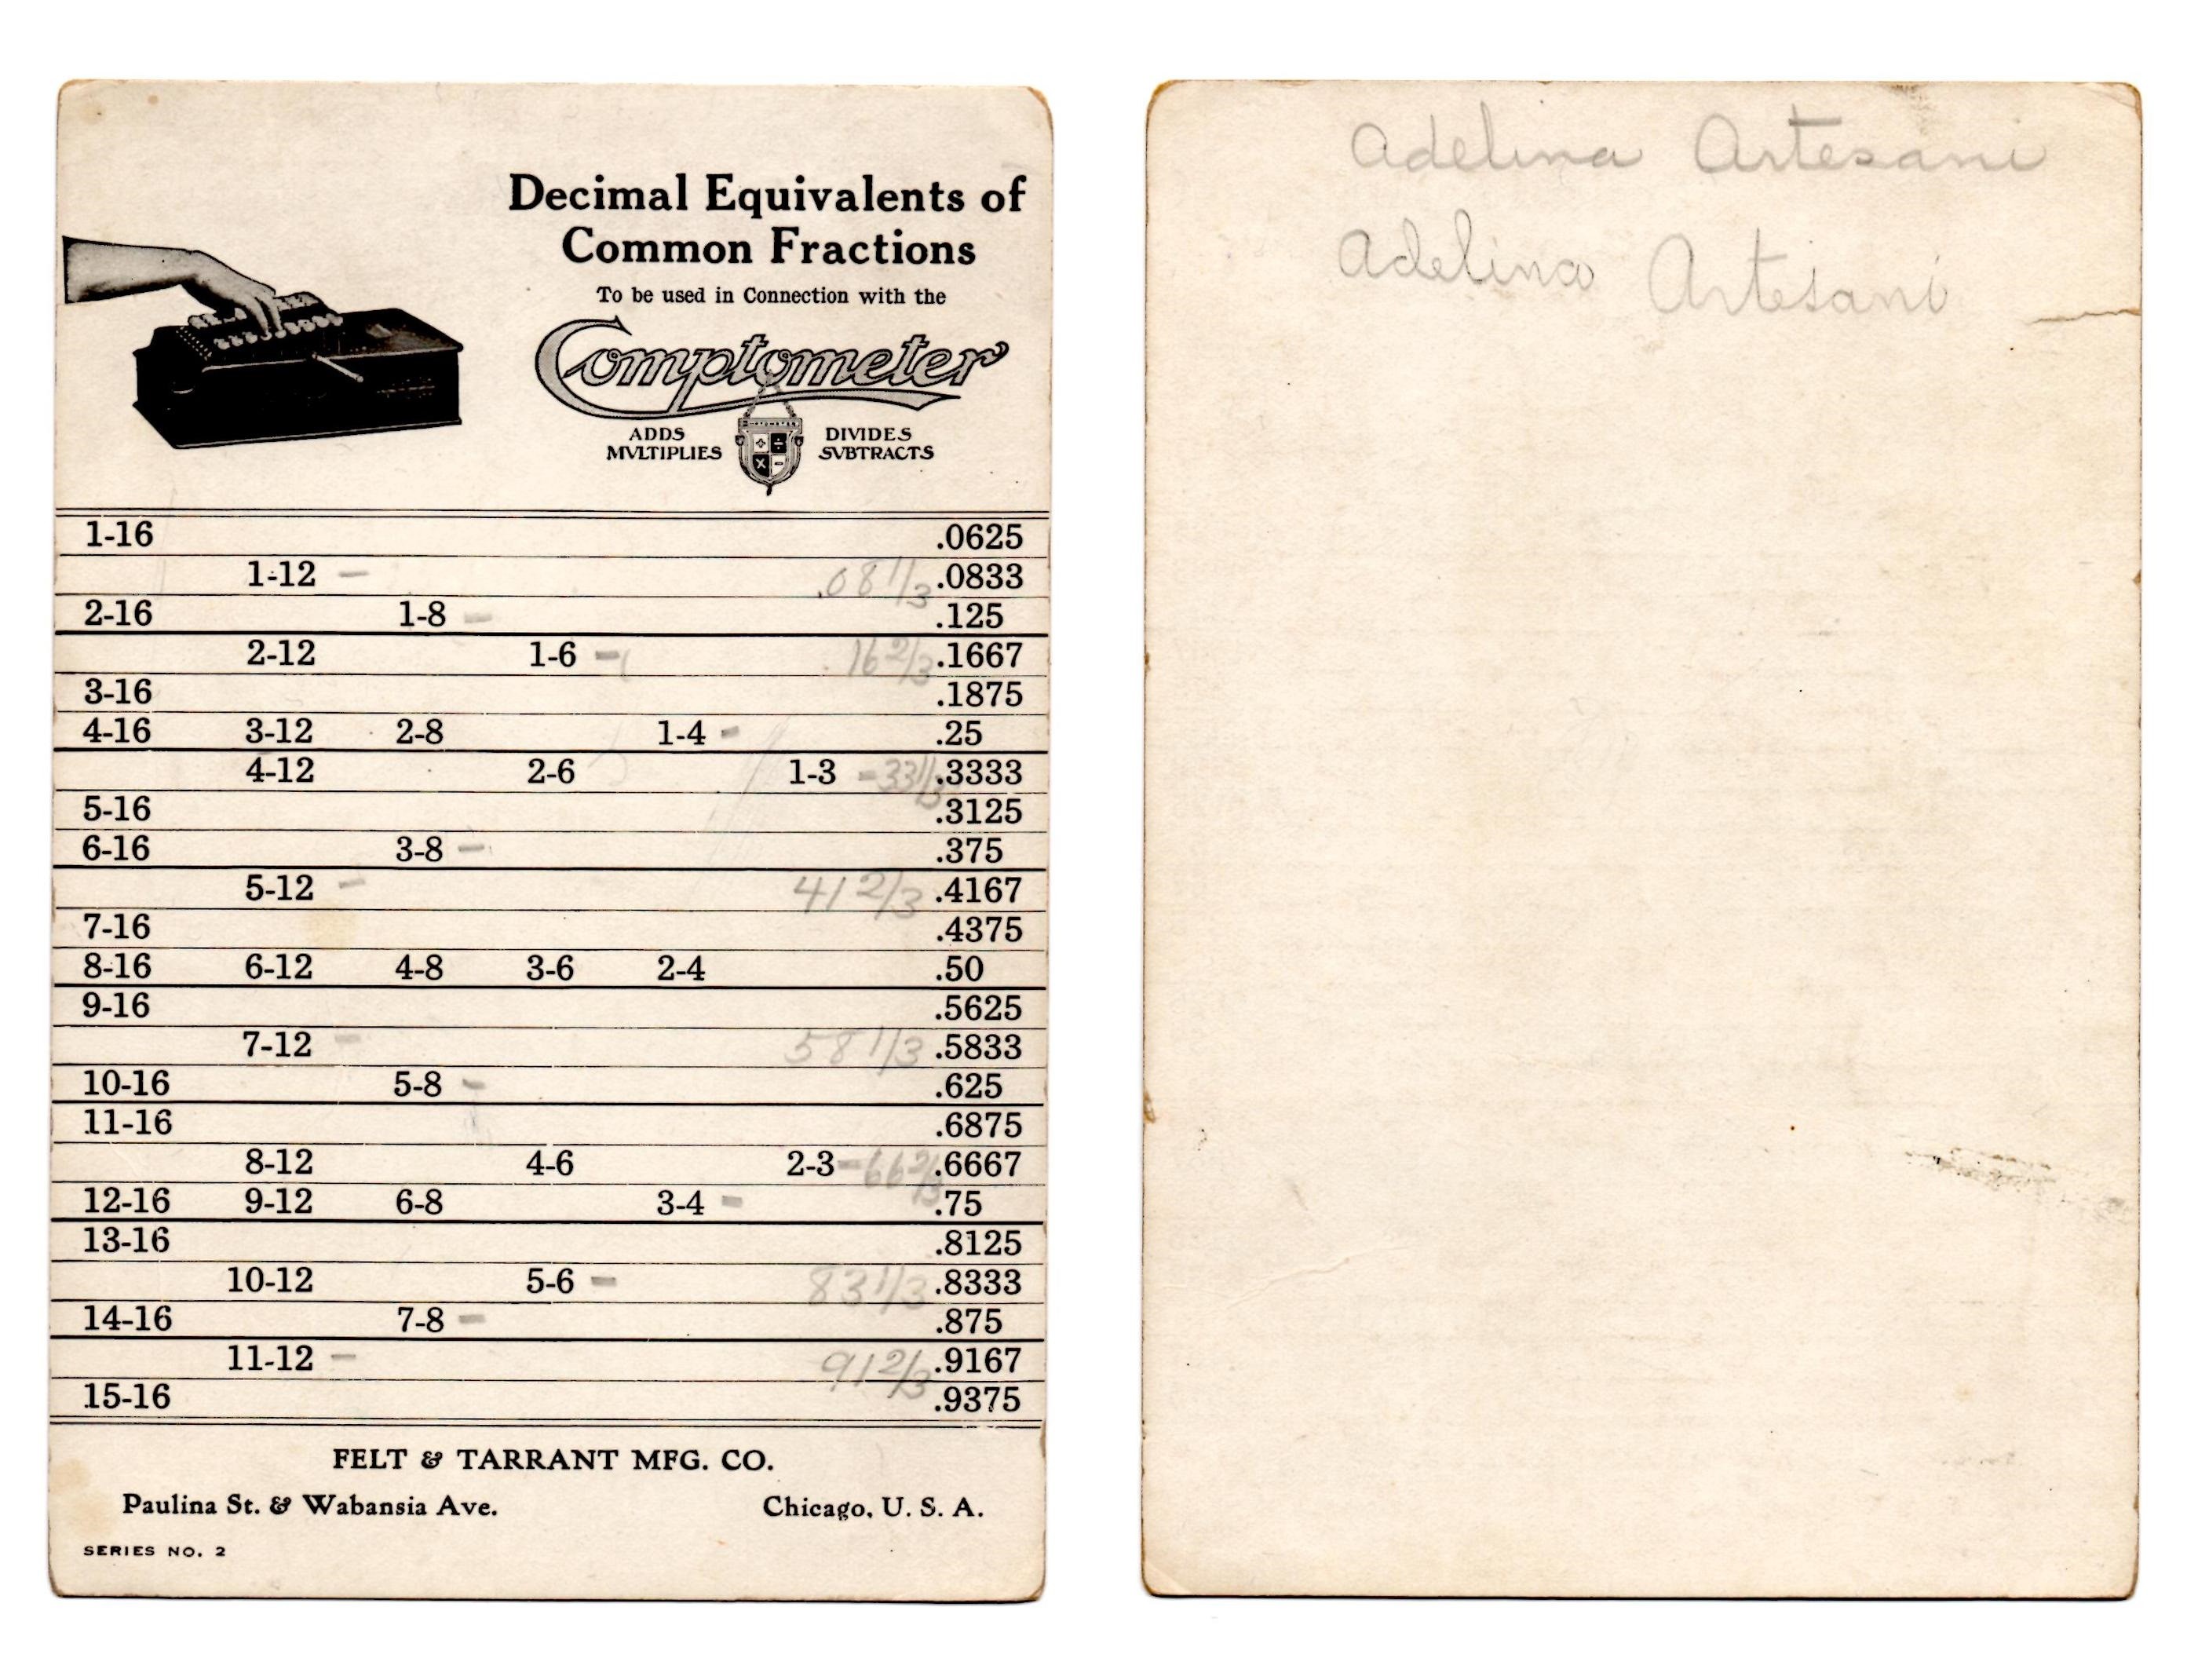 Decimal Equivalents of
Common Fractions
To be used in Connection with the
Comptometer
ADDS DIVIDES
MVLTIPLIES SVBTRACTS
1-16 .0625
1-12 - .08 1/3 .0833
2-16 1-8 - .125
2-12 1-6 - 16 2/3 .1667
3-16 .1875
4-16 3-12 2-8 1-4 - .25
4-12 2-6 1-3 - 33 1/3 .3333
5-16 .3125
6-16 3-8 - .375
5-12 - 41 2/3 .4167
7-16 .4375
8-16 6-12 4-8 3-6 2-4 .50
9-16 .5625
7-12 - 58 1/3 .5833
10-16 5-8 - .625
11-16 .6875
8-12 4-6 2-3 - 66 2/3 .6667
12-16 9-12 6-8 3-4 - .75
13-16 .8125
10-12 5-6 - 83 1/3 .8333
14-16 7-8 - .875
11-12 - 91 2/3 .9167
15-16 .9375
FELT & TARRANT MFG. CO.
Paulina St. & Wabansia Ave. Chicago, U. S. A.
SERIES NO. 2
Adelina Artesani
Adelina Artesani